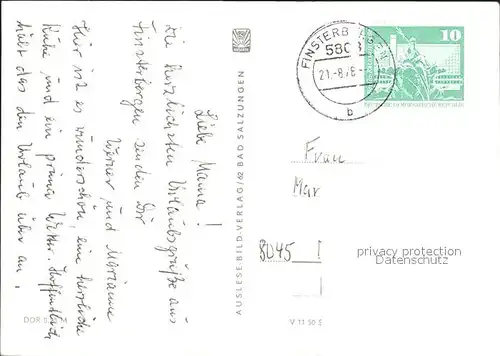 Liebe Mama!
Die herzlichsten Urlaubsgrüße aus
Finsterbergen senden Dir
Werner und Marianne
Hier ist es wunderschön, eine herrliche
Ruhe und ein prima Wetter. Hoffentlich
hält das den Urlaub über an.
DDR
AUSLESE-BILD-VERLAG/62 BAD SALZUNGEN
FINSTERBERGEN
5808
21.-8.78-
b
10
Frau
Mar
8045
privacy protection
Datenschutz
V 11 50